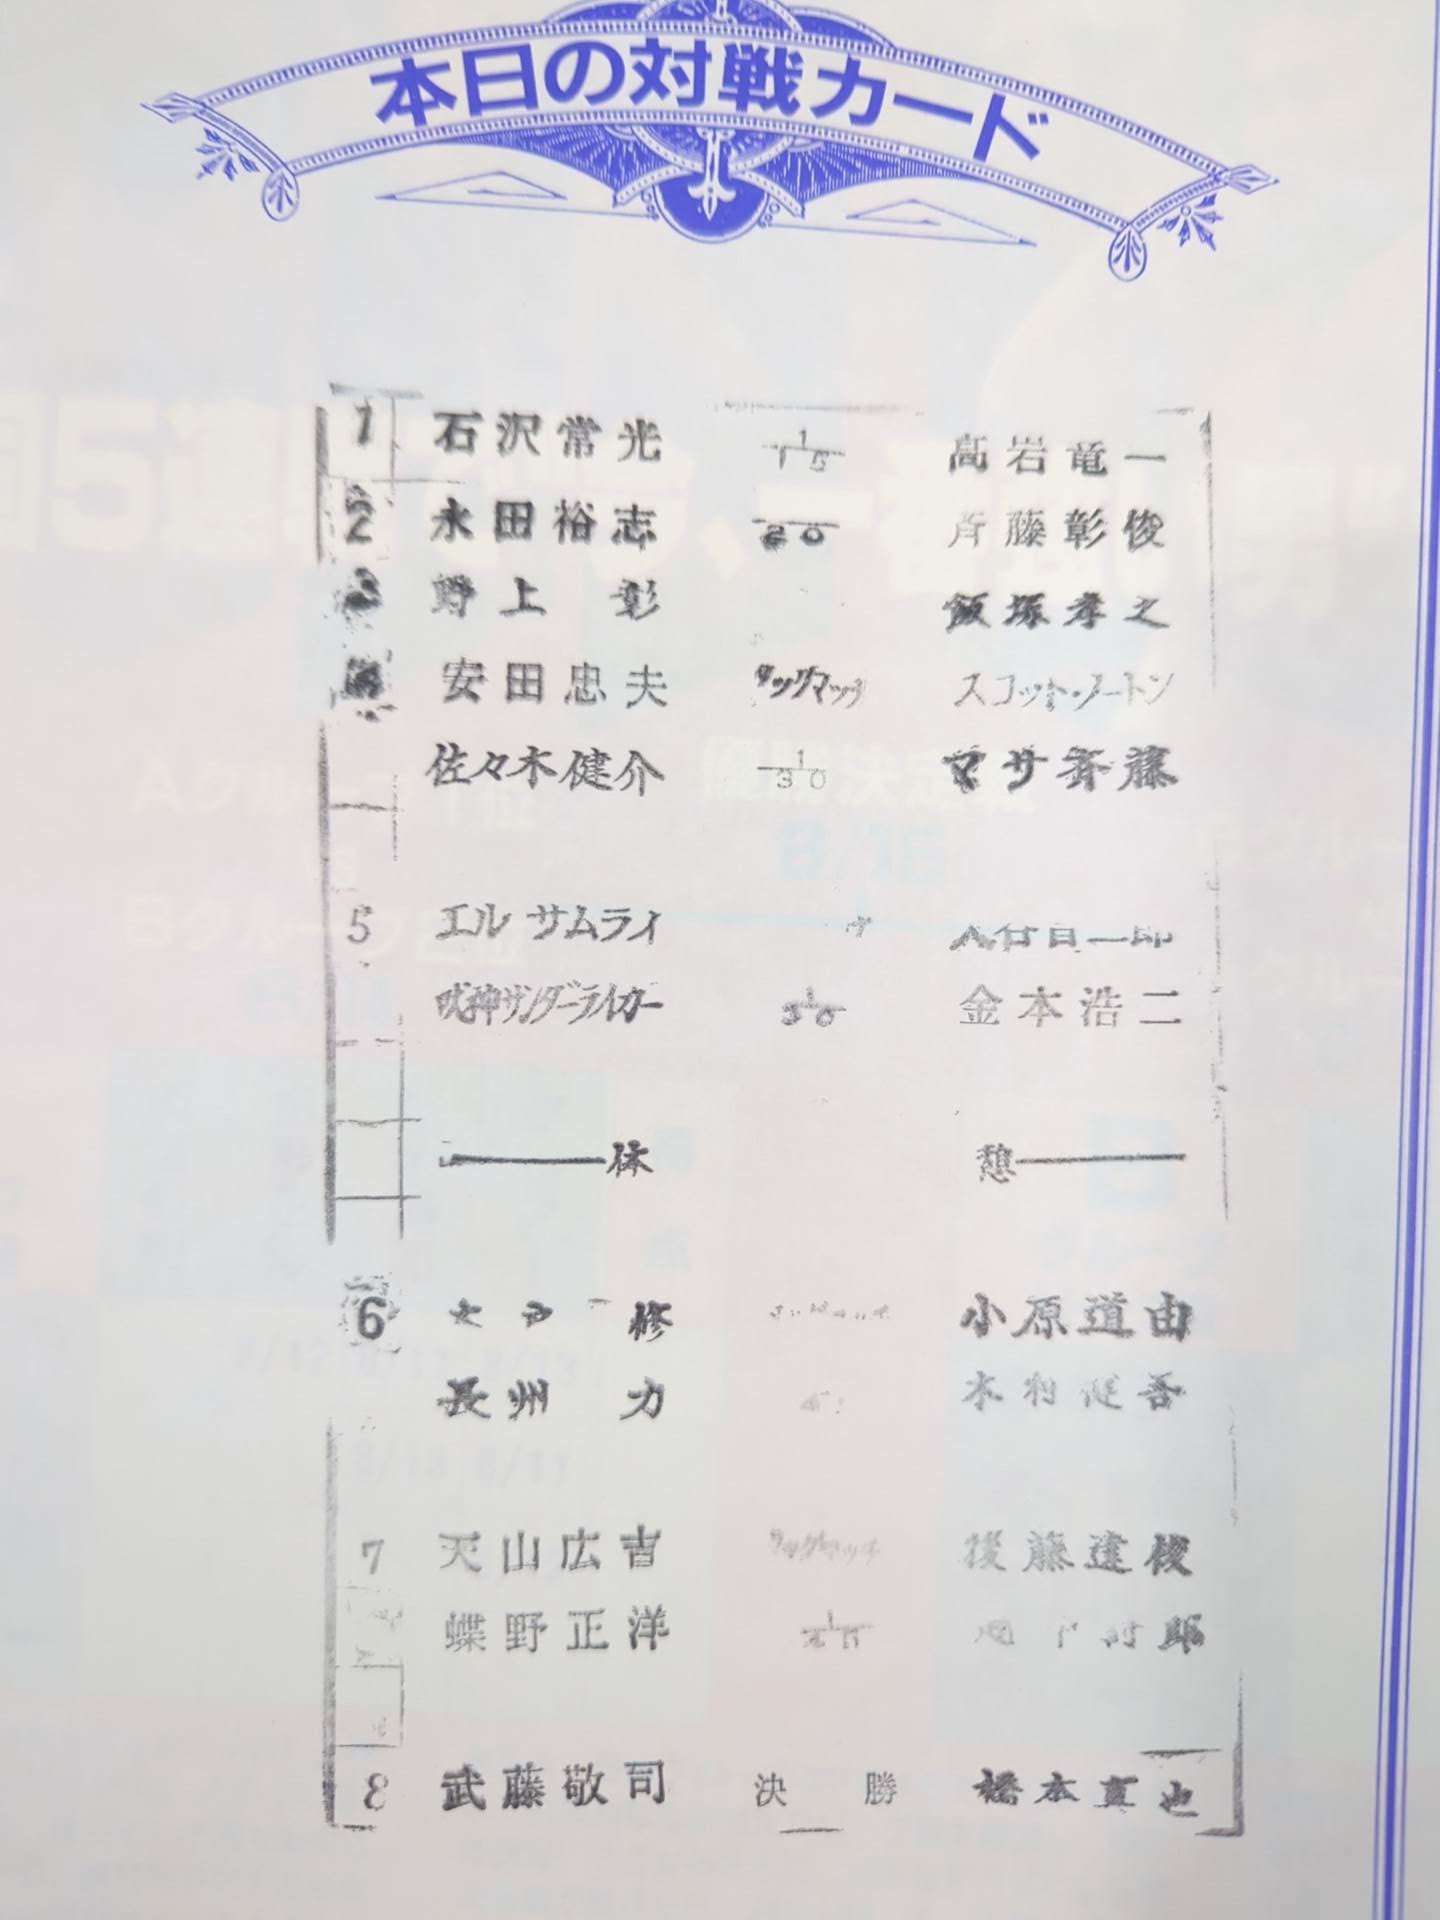 本日の対戦カード
1 石沢常光 1/15 高岩竜一
2 永田裕志 20 斉藤彰俊
野上 彰 飯塚孝之
安田忠夫 タッグマッチ スコット・ノートン
佐々木健介 1/30 マサ斉藤
5 エル サムライ
獣神サンダーライガー 1/30 金本浩二
休 憩
6 修 小原道由
長州 力 木村健吾
7 天山広吉 タッグマッチ 後藤達俊
蝶野正洋 郎
8 武藤敬司 決 勝 橋本真也